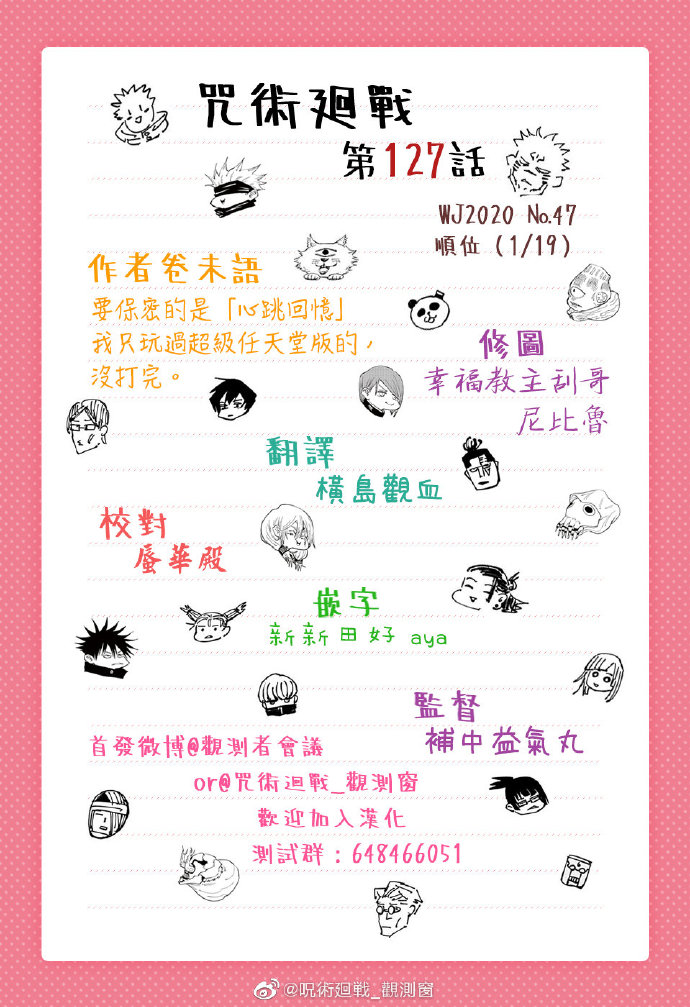 咒術廻戰
第127話
WJ2020 No.47
順位 (1/19)
作者卷末語
要保密的是「心跳回憶」
我只玩過超級任天堂版的，
沒打完。
修圖
幸福教主刮哥
尼比魯
翻譯
橫島觀血
校對
蜃華殿
嵌字
新新田好 aya
監督
補中益氣丸
首發微博@觀測者會議
or@咒術迴戰_觀測窗
歡迎加入漢化
測試群：648466051
@呪術廻戦_觀測窗